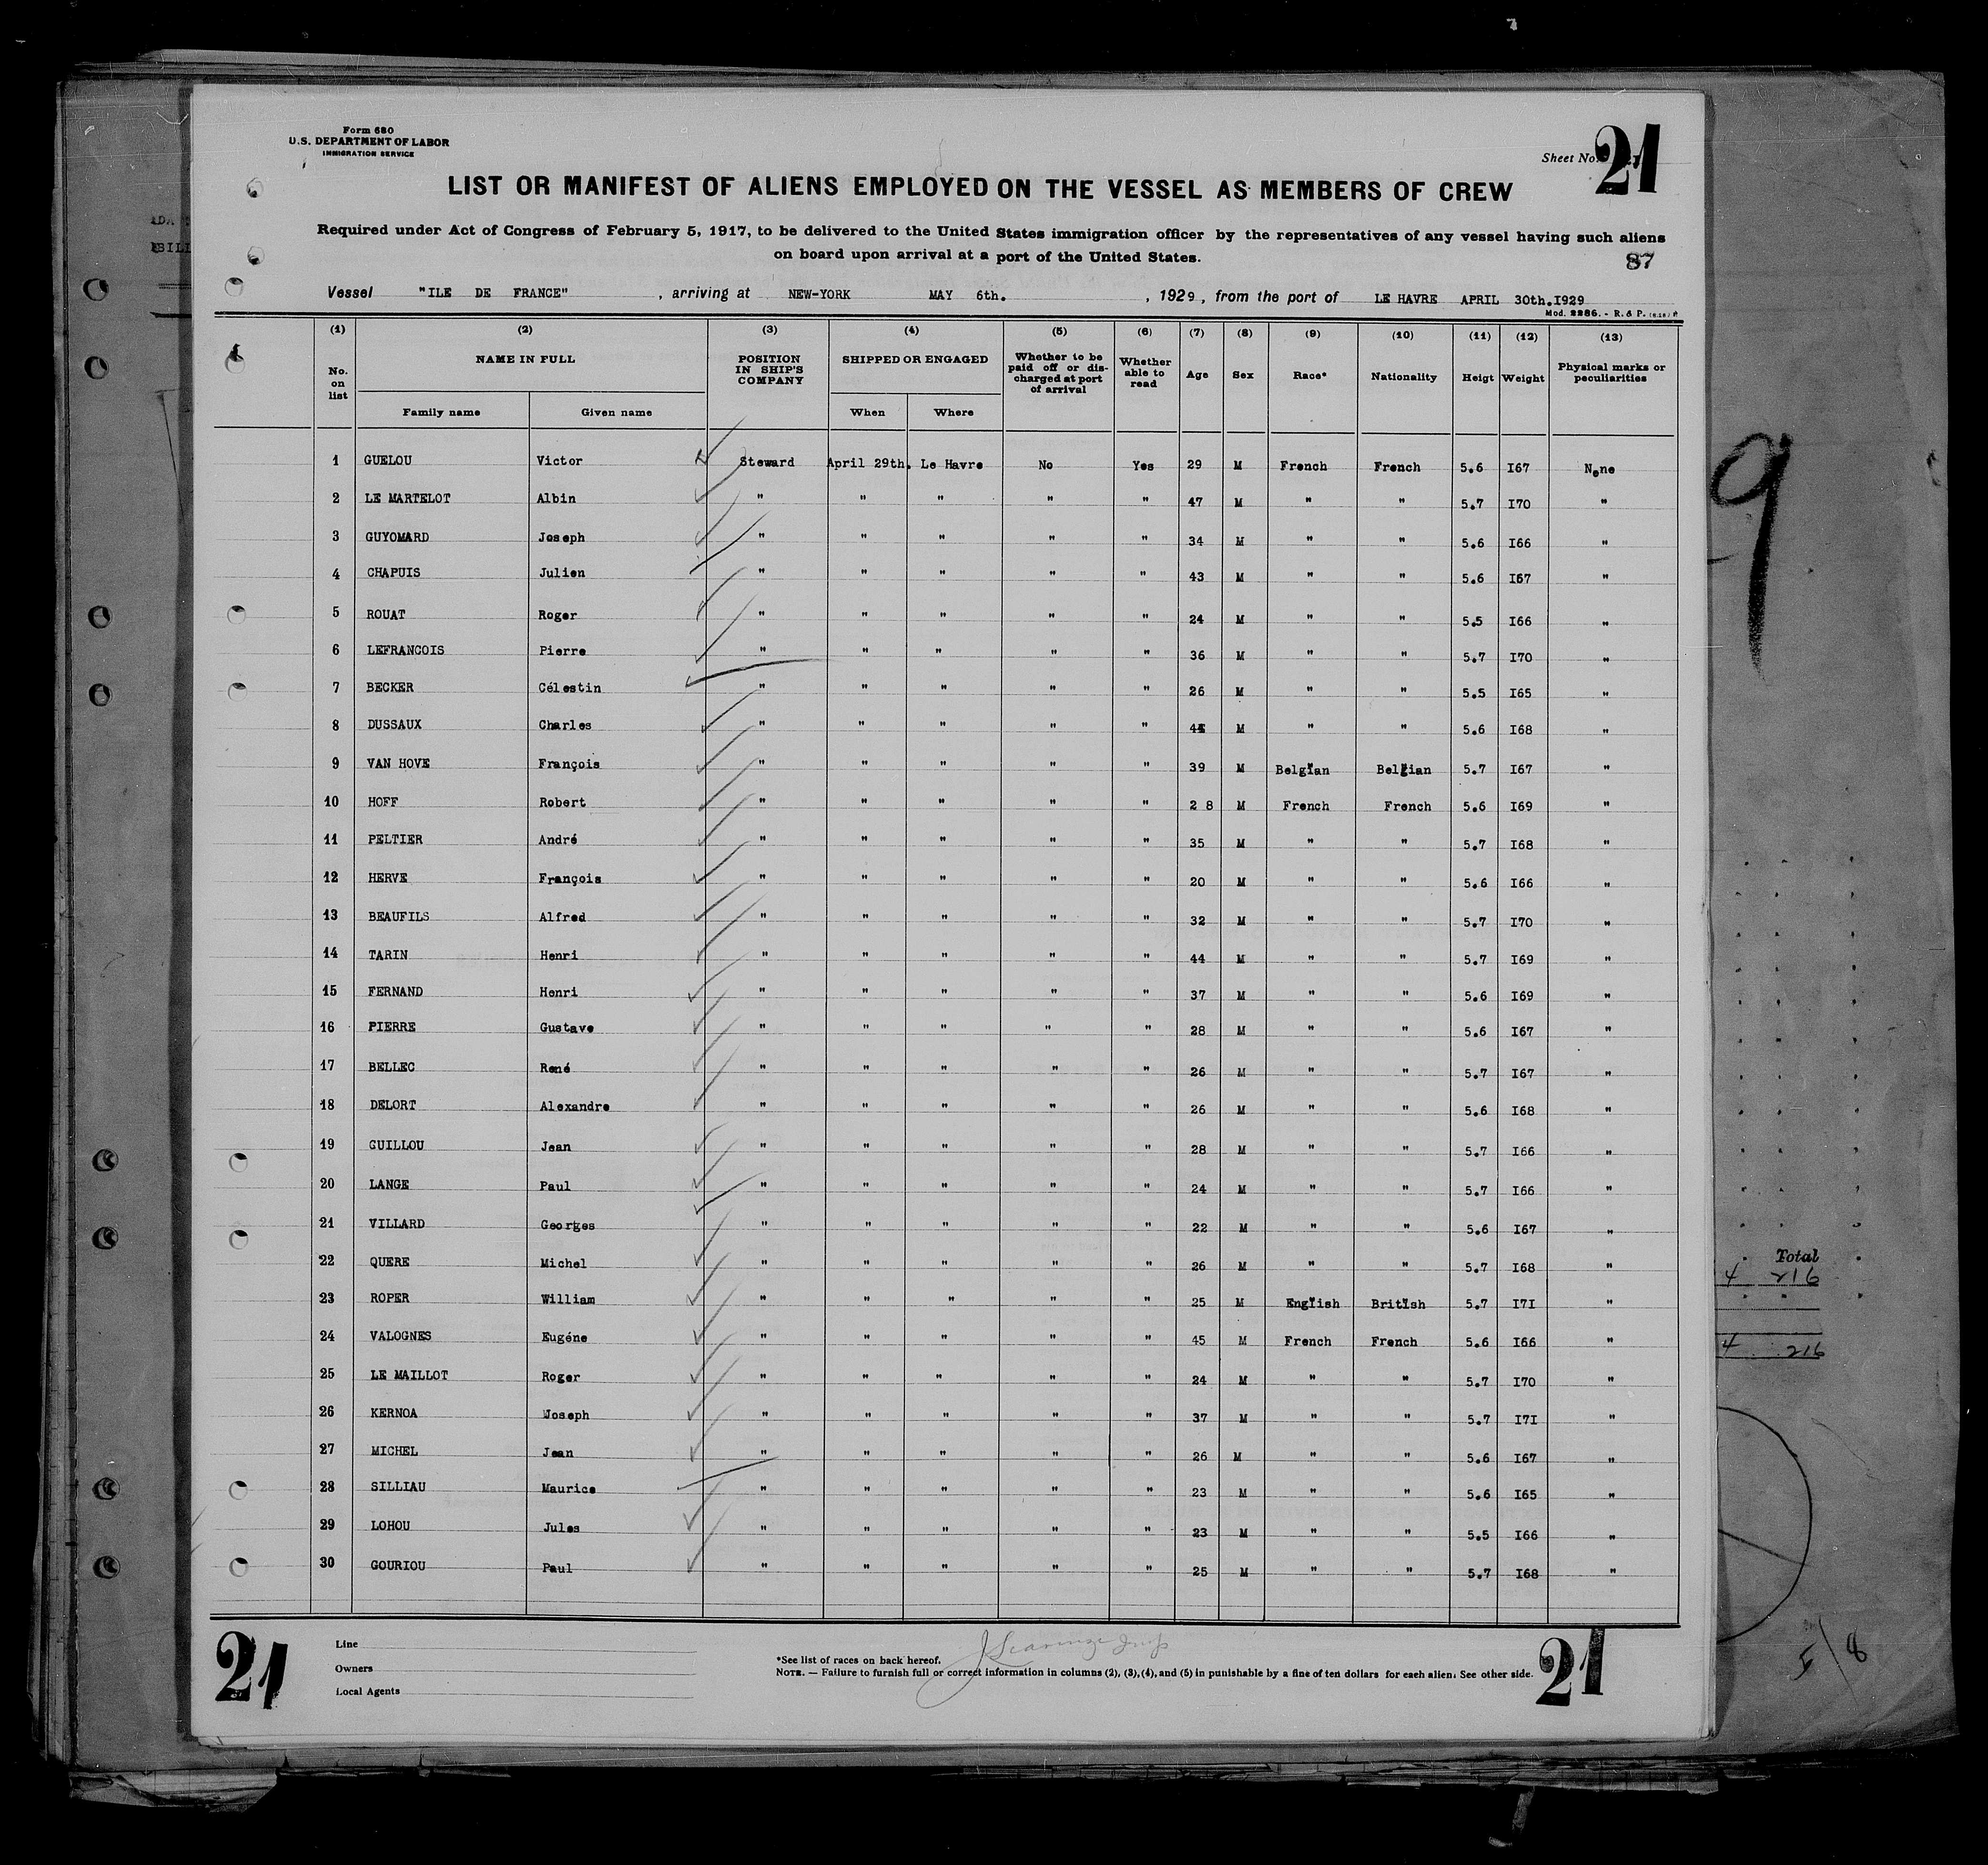 Form 680
U.S. DEPARTMENT OF LABOR
IMMIGRATION SERVICE
Sheet No. 21
LIST OR MANIFEST OF ALIENS EMPLOYED ON THE VESSEL AS MEMBERS OF CREW
Required under Act of Congress of February 5, 1917, to be delivered to the United States immigration officer by the representatives of any vessel having such aliens
on board upon arrival at a port of the United States.
87
Vessel "ILE DE FRANCE" , arriving at NEW-YORK MAY 6th. , 1929, from the port of LE HAVRE APRIL 30th.I929
Mod. 2286. - R. & P.
(1) (2) (3) (4) (5) (6) (7) (8) (9) (10) (11) (12) (13)
No. on list NAME IN FULL POSITION IN SHIP'S COMPANY SHIPPED OR ENGAGED Whether to be paid off or discharged at port of arrival Whether able to read Age Sex Race* Nationality Heigt Weight Physical marks or peculiarities
Family name Given name When Where
1 GUELOU Victor Steward April 29th. Le Havre No Yes 29 M French French 5.6 I67 None
2 LE MARTELOT Albin " " " " " 47 M " " 5.7 I70 "
3 GUYOMARD Joseph " " " " " 34 M " " 5.6 I66 "
4 CHAPUIS Julien " " " " " 43 M " " 5.6 I67 "
5 ROUAT Roger " " " " " 24 M " " 5.5 I66 "
6 LEFRANCOIS Pierre " " " " " 36 M " " 5.7 I70 "
7 BECKER Célestin " " " " " 26 M " " 5.5 I65 "
8 DUSSAUX Charles " " " " " M " " 5.6 I68 "
9 VAN HOVE François " " " " " 39 M Belgian Belgian 5.7 I67 "
10 HOFF Robert " " " " " 2 8 M French French 5.6 I69 "
11 PELTIER André " " " " " 35 M " " 5.7 I68 "
12 HERVE François " " " " " 20 M " " 5.6 I66 "
13 BEAUFILS Alfred " " " " " 32 M " " 5.7 I70 "
14 TARIN Henri " " " " " 44 M " " 5.7 I69 "
15 FERNAND Henri " " " " " 37 M " " 5.6 I69 "
16 PIERRE Gustave " " " " " 28 M " " 5.6 I67 "
17 BELLEC René " " " " " 26 M " " 5.7 I67 "
18 DELORT Alexandre " " " " " 26 M " " 5.6 I68 "
19 GUILLOU Jean " " " " " 28 M " " 5.7 I66 "
20 LANGE Paul " " " " " 24 M " " 5.7 I66 "
21 VILLARD Georges " " " " " 22 M " " 5.6 I67 "
22 QUERE Michel " " " " " 26 M " " 5.7 I68 "
23 ROPER William " " " " " 25 M English British 5.7 I7I "
24 VALOGNES Eugéne " " " " " 45 M French French 5.6 I66 "
25 LE MAILLOT Roger " " " " " 24 M " " 5.7 I70 "
26 KERNOA Joseph " " " " " 37 M " " 5.7 I7I "
27 MICHEL Jean " " " " " 26 M " " 5.6 I67 "
28 SILLIAU Maurice " " " " " 23 M " " 5.6 I65 "
29 LOHOU Jules " " " " " 23 M " " 5.5 I66 "
30 GOURIOU Paul " " " " " 25 M " " 5.7 I68 "
21
Line
Owners
Local Agents
*See list of races on back hereof.
NOTE. — Failure to furnish full or correct information in columns (2), (3), (4), and (5) in punishable by a fine of ten dollars for each alien. See other side.
21
9
Total
4 216
4 216
5/8